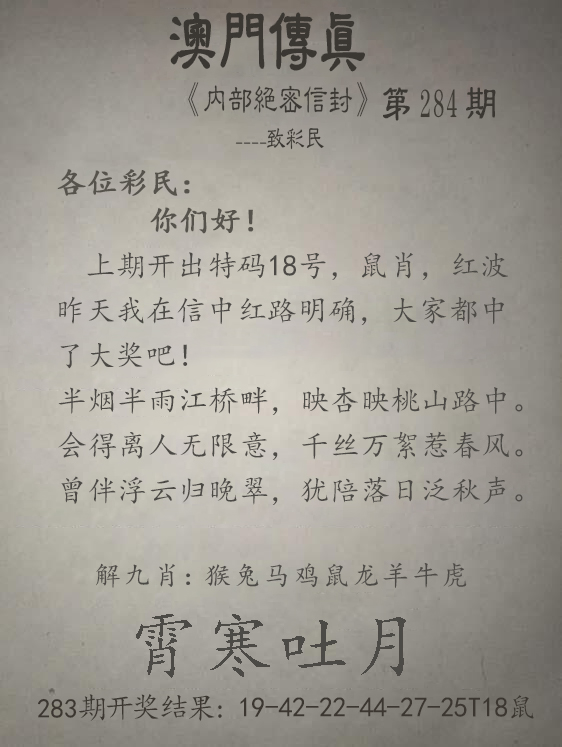 澳門傳眞
《内部絕密信封》第284期
----致彩民
各位彩民：
你们好！
上期开出特码18号，鼠肖，红波
昨天我在信中红路明确，大家都中
了大奖吧！
半烟半雨江桥畔，映杏映桃山路中。
会得离人无限意，千丝万絮惹春风。
曾伴浮云归晚翠，犹陪落日泛秋声。
解九肖：猴兔马鸡鼠龙羊牛虎
霄寒吐月
283期开奖结果：19-42-22-44-27-25T18鼠